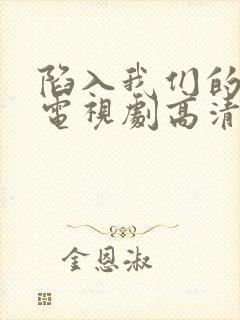 陷入我们的
電視劇高清
金恩淑